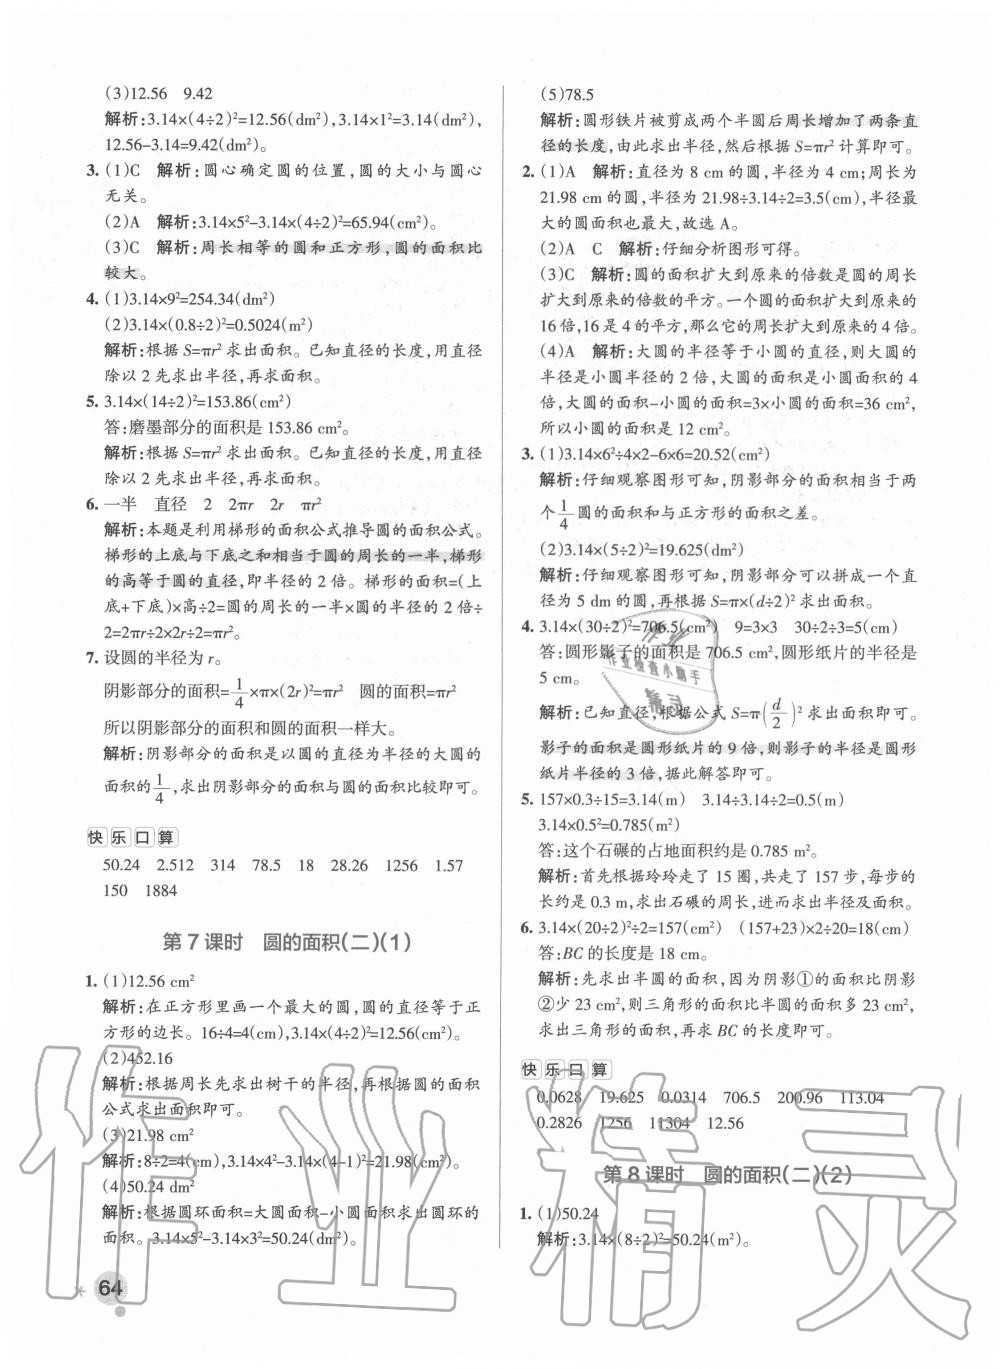 (3)12.56　9.42
解析:3.14×(4÷2)²=12.56(dm²),3.14×1²=3.14(dm²),
12.56-3.14=9.42(dm²)。
3. (1)C　解析:圆心确定圆的位置,圆的大小与圆心
无关。
(2)A　解析:3.14×5²-3.14×(4÷2)²=65.94(cm²)。
(3)C　解析:周长相等的圆和正方形,圆的面积比
较大。
4. (1)3.14×9²=254.34(dm²)
(2)3.14×(0.8÷2)²=0.5024(m²)
解析:根据 S=πr² 求出面积。已知直径的长度,用直径
除以 2 先求出半径,再求面积。
5. 3.14×(14÷2)²=153.86(cm²)
答:磨墨部分的面积是 153.86 cm²。
解析:根据 S=πr² 求出面积。已知直径的长度,用直径
除以 2 先求出半径,再求面积。
6. 一半　直径　2　2πr　2r　πr²
解析:本题是利用梯形的面积公式推导圆的面积公式。
梯形的上底与下底之和相当于圆的周长的一半,梯形
的高等于圆的直径,即半径的 2 倍。梯形的面积=(上
底+下底)×高÷2=圆的周长的一半×圆的半径的 2 倍÷
2=2πr÷2×2r÷2=πr²。
7. 设圆的半径为 r。
阴影部分的面积=1/4×π×(2r)²=πr²　圆的面积=πr²
所以阴影部分的面积和圆的面积一样大。
解析:阴影部分的面积是以圆的直径为半径的大圆的
面积的1/4,求出阴影部分的面积与圆的面积比较即可。
快乐口算
50.24　2.512　314　78.5　18　28.26　1256　1.57
150　1884
第 7 课时　圆的面积(二)(1)
1. (1)12.56 cm²
解析:在正方形里画一个最大的圆,圆的直径等于正
方形的边长。16÷4=4(cm),3.14×(4÷2)²=12.56(cm²)。
(2)452.16
解析:根据周长先求出树干的半径,再根据圆的面积
公式求出面积即可。
(3)21.98 cm²
解析:8÷2=4(cm),3.14×4²-3.14×(4-1)²=21.98(cm²)。
(4)50.24 dm²
解析:根据圆环面积=大圆面积-小圆面积求出圆环的
面积。3.14×5²-3.14×3²=50.24(dm²)。
64
(5)78.5
解析:圆形铁片被剪成两个半圆后周长增加了两条直
径的长度,由此求出半径,然后根据 S=πr² 计算即可。
2. (1)A　解析:直径为 8 cm 的圆,半径为 4 cm;周长为
21.98 cm 的圆,半径为 21.98÷3.14÷2=3.5(cm),半径最
大的圆面积也最大,故选 A。
(2)A　C　解析:仔细分析图形可得。
(3)C　解析:圆的面积扩大到原来的倍数是圆的周长
扩大到原来的倍数的平方。一个圆的面积扩大到原来的
16 倍,16 是 4 的平方,那么它的周长扩大到原来的 4 倍。
(4)A　解析:大圆的半径等于小圆的直径,则大圆的
半径是小圆半径的 2 倍,大圆的面积是小圆面积的 4
倍,大圆的面积-小圆的面积=3×小圆的面积=36 cm²,
所以小圆的面积是 12 cm²。
3. (1)3.14×6²÷4×2-6×6=20.52(cm²)
解析:仔细观察图形可知,阴影部分的面积相当于两
个1/4圆的面积和与正方形的面积之差。
(2)3.14×(5÷2)²=19.625(dm²)
解析:仔细观察图形可知,阴影部分可以拼成一个直
径为 5 dm 的圆,再根据 S=π×(d÷2)² 求出面积。
4. 3.14×(30÷2)²=706.5(cm²)　9=3×3　30÷2÷3=5(cm)
答:圆形影子的面积是 706.5 cm²,圆形纸片的半径是
5 cm。
解析:已知直径,根据公式 S=π(d/2)² 求出面积即可。
影子的面积是圆形纸片的 9 倍,则影子的半径是圆形
纸片半径的 3 倍,据此解答即可。
5. 157×0.3÷15=3.14(m)　3.14÷3.14÷2=0.5(m)
3.14×0.5²=0.785(m²)
答:这个石碾的占地面积约是 0.785 m²。
解析:首先根据玲玲走了 15 圈,共走了 157 步,每步的
长约是 0.3 m,求出石碾的周长,进而求出半径及面积。
6. 3.14×(20÷2)²÷2=157(cm²)　(157+23)×2÷20=18(cm)
答:BC 的长度是 18 cm。
解析:先求出半圆的面积,因为阴影①的面积比阴影
②少 23 cm²,则三角形的面积比半圆的面积多 23 cm²,
求出三角形的面积,再求 BC 的长度即可。
快乐口算
0.0628　19.625　0.0314　706.5　200.96　113.04
0.2826　1256　11304　12.56
第 8 课时　圆的面积(二)(2)
1. (1)50.24
解析:3.14×(8÷2)²=50.24(m²)。
作业精灵
作业检查小助手